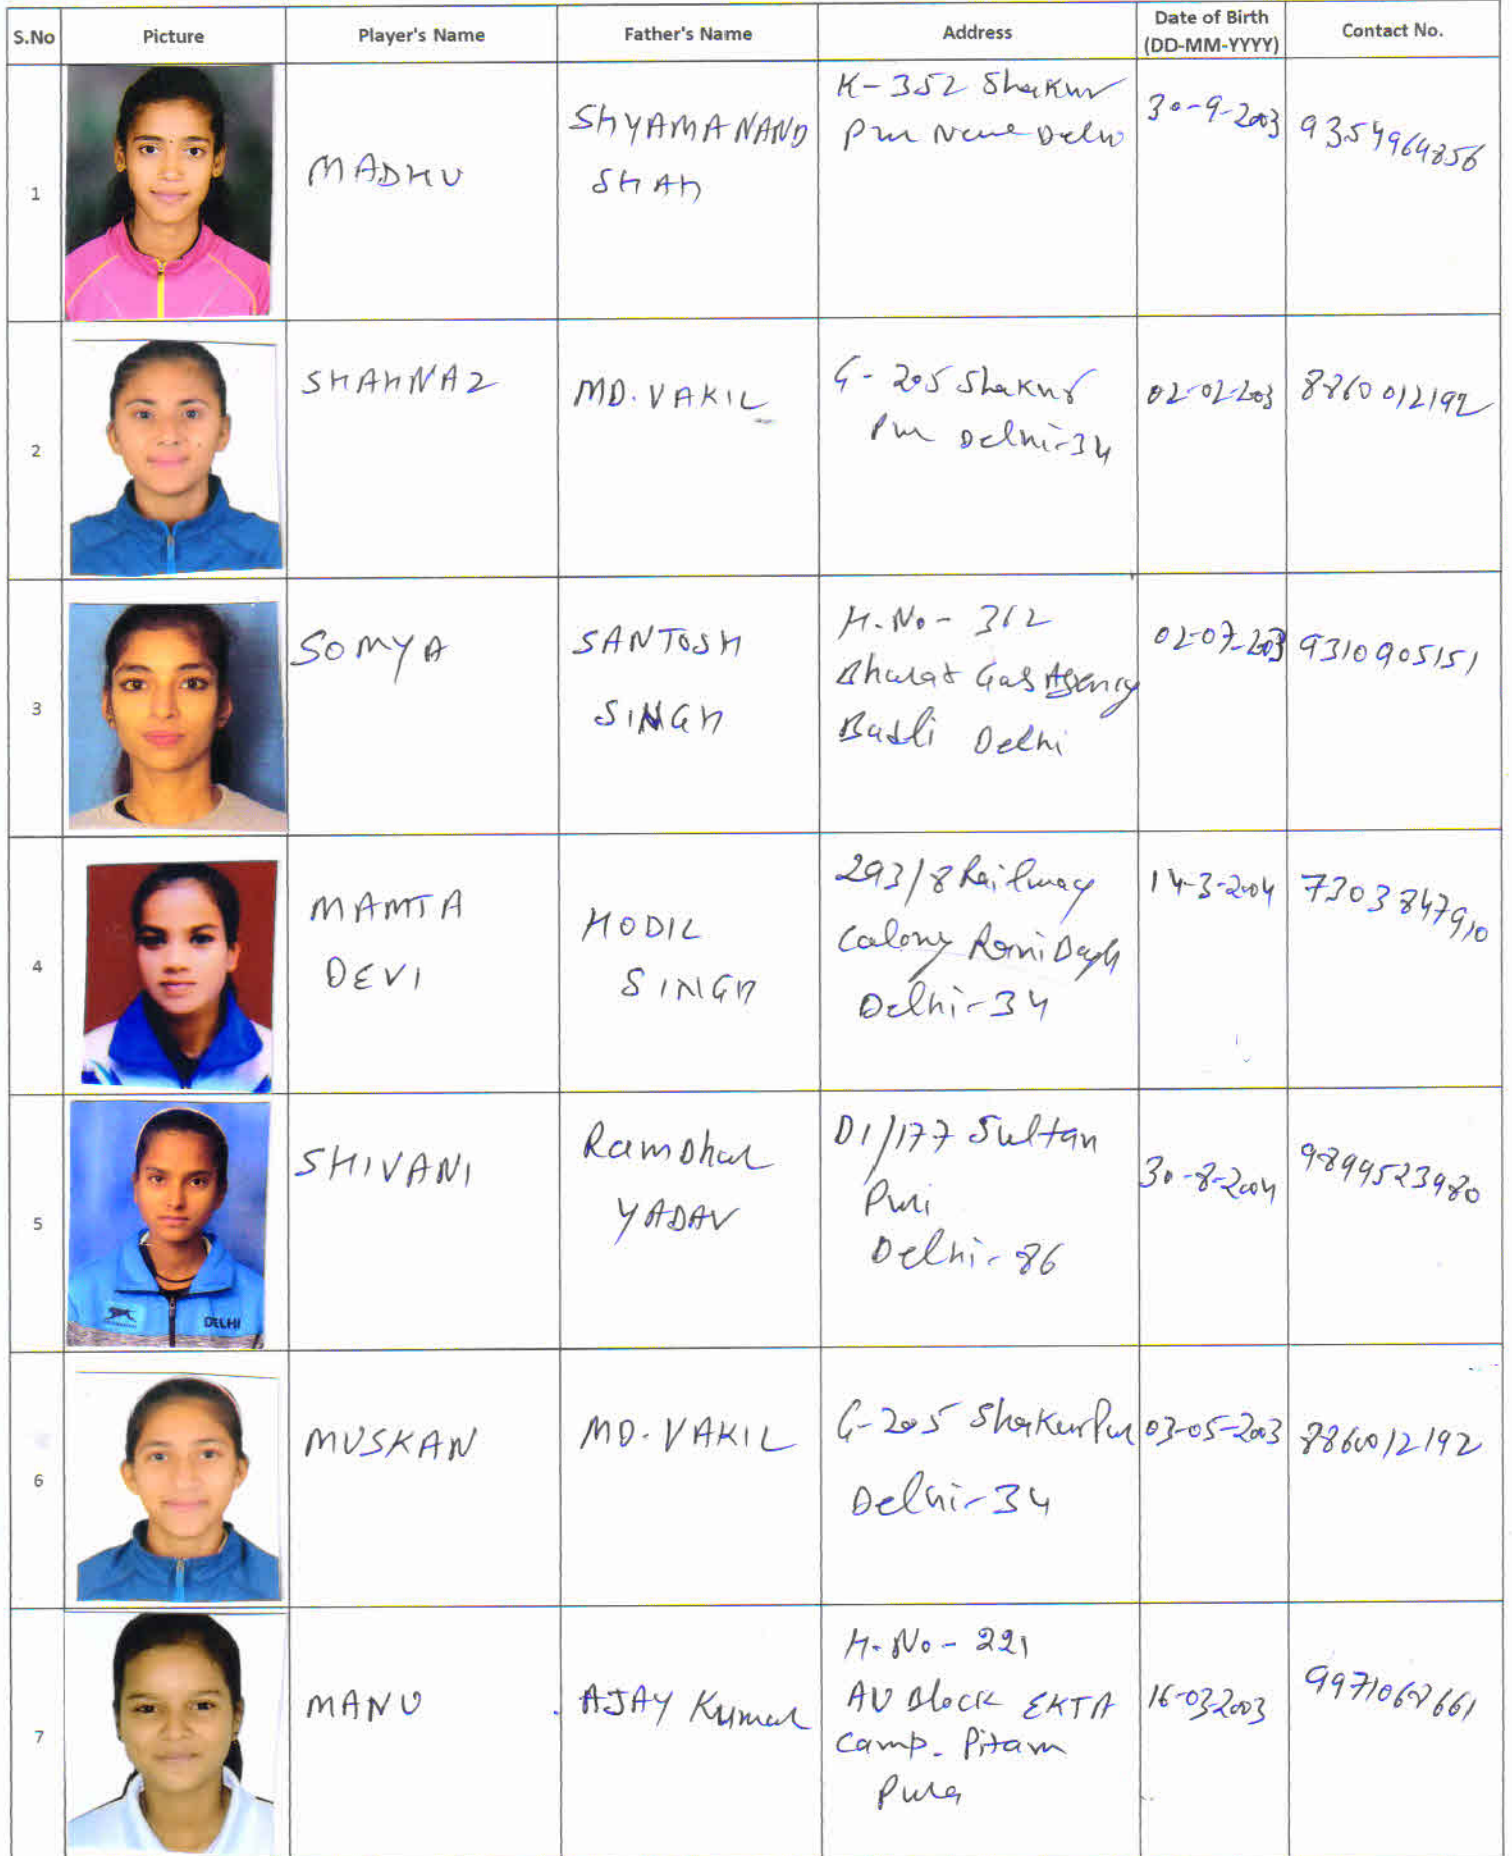 S.No Picture Player's Name Father's Name Address Date of Birth (DD-MM-YYYY) Contact No.
1 MADHU SHYAMANAND SHAH K-352 Shakur Pur New Delhi 30-9-2003 9354964856
2 SHAHNAZ MD. VAKIL G-205 Shakur Pur Delhi-34 02-02-2003 8860012192
3 SOMYA SANTOSH SINGH H.No-312 Bharat Gas Agency Badli Delhi 02-07-2003 9310905151
4 MAMTA DEVI HODIL SINGH 293/8 Railway Calony Rani Bagh Delhi-34 14-3-2004 7303847910
5 SHIVANI Ramdhar YADAV D1/177 Sultan Puri Delhi-86 30-8-2004 9899523980
DELHI
6 MUSKAN MD. VAKIL G-205 ShakurPur Delhi-34 03-05-2003 8860012192
7 MANU AJAY Kumar H.No-221 AU Block EKTA Camp. Pitam Pura 16-03-2003